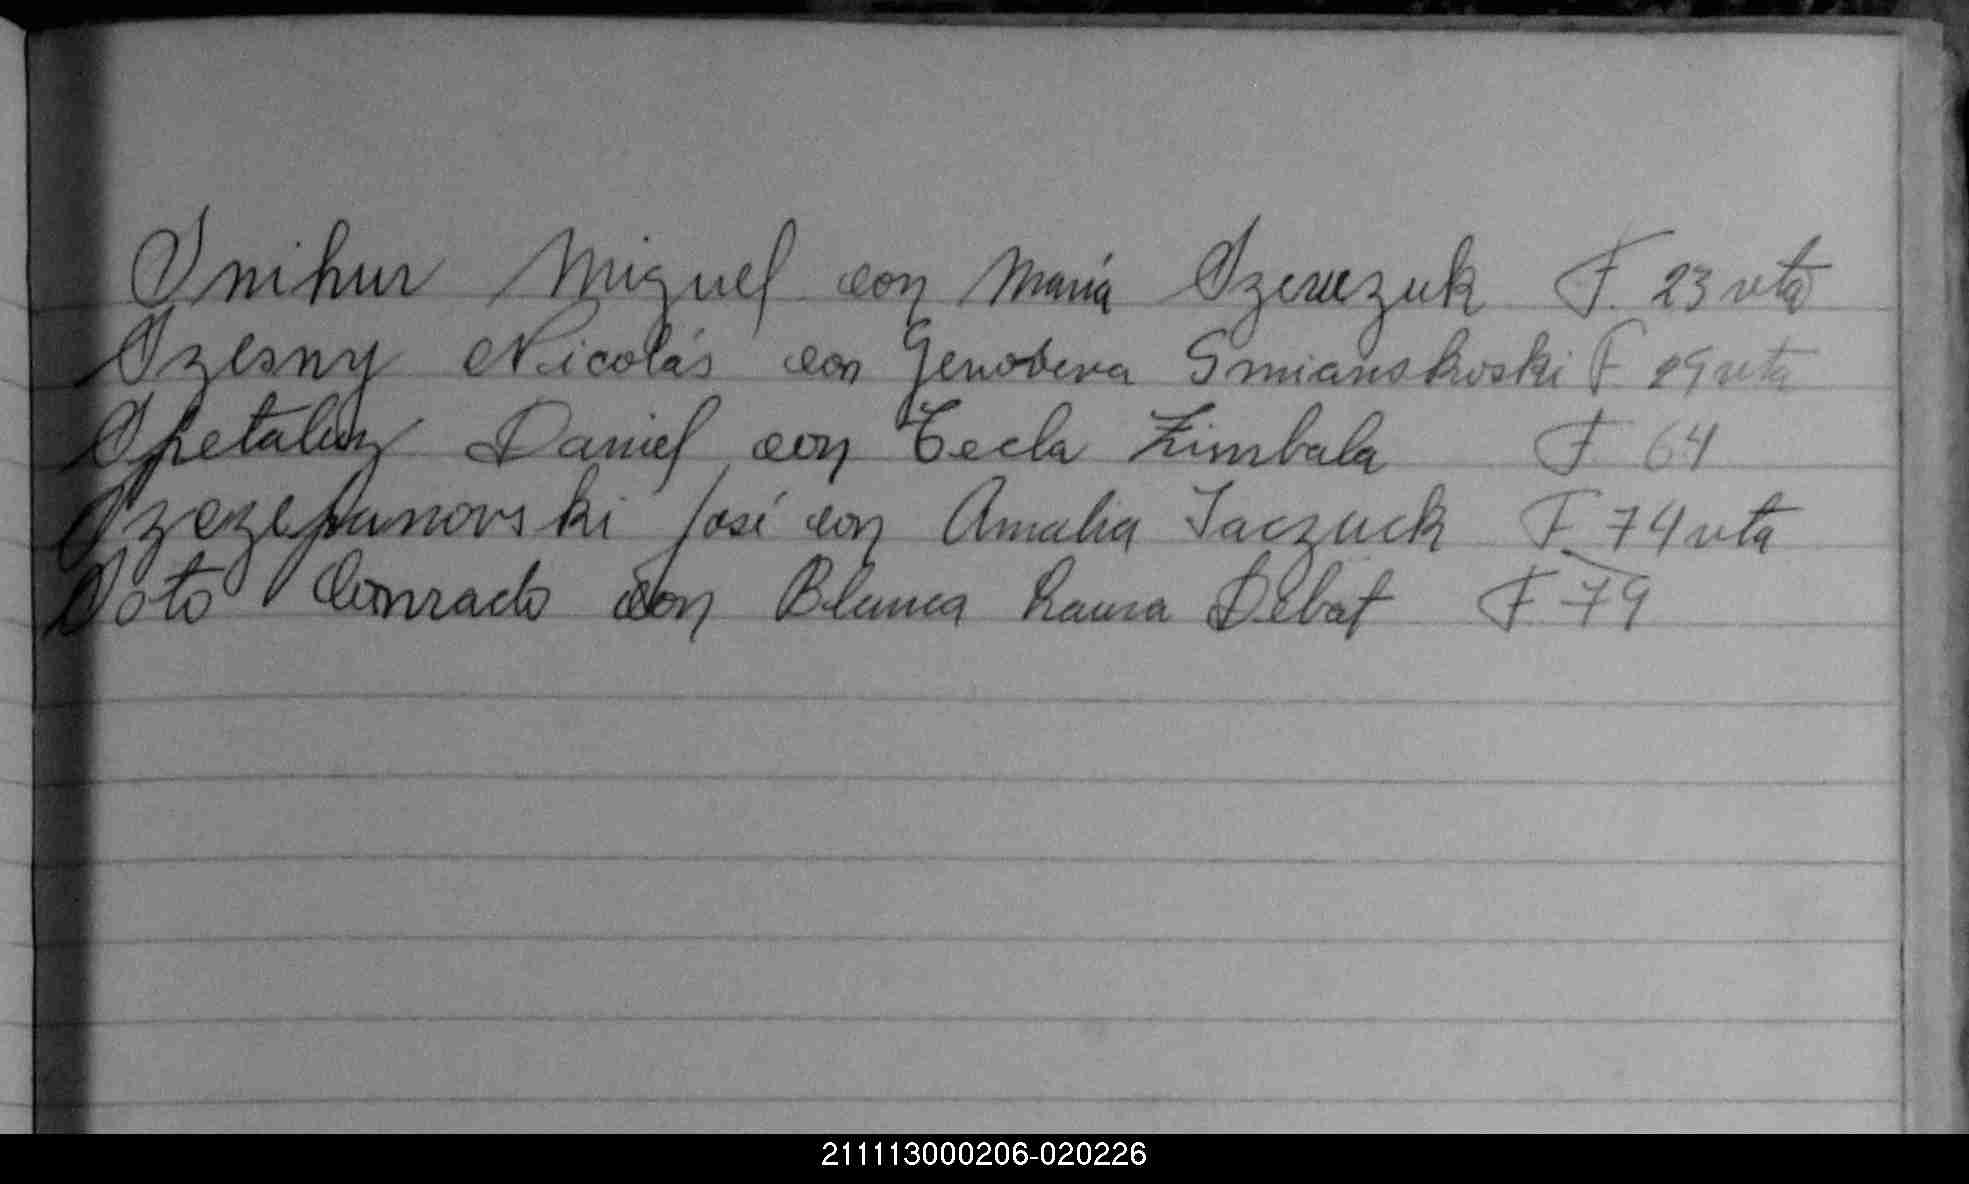 Snihur Miguel con María Szewczuk F. 23 vta
Szesny Nicolás con Genoveva Smianskoski F. 29 vta
Daniel con Tecla Zimbala F 64
Szczepanovski José con Amalia Jaczuck F 74 vta
Soto Conrado con Blanca Laura Debat F. 79
211113000206-020226